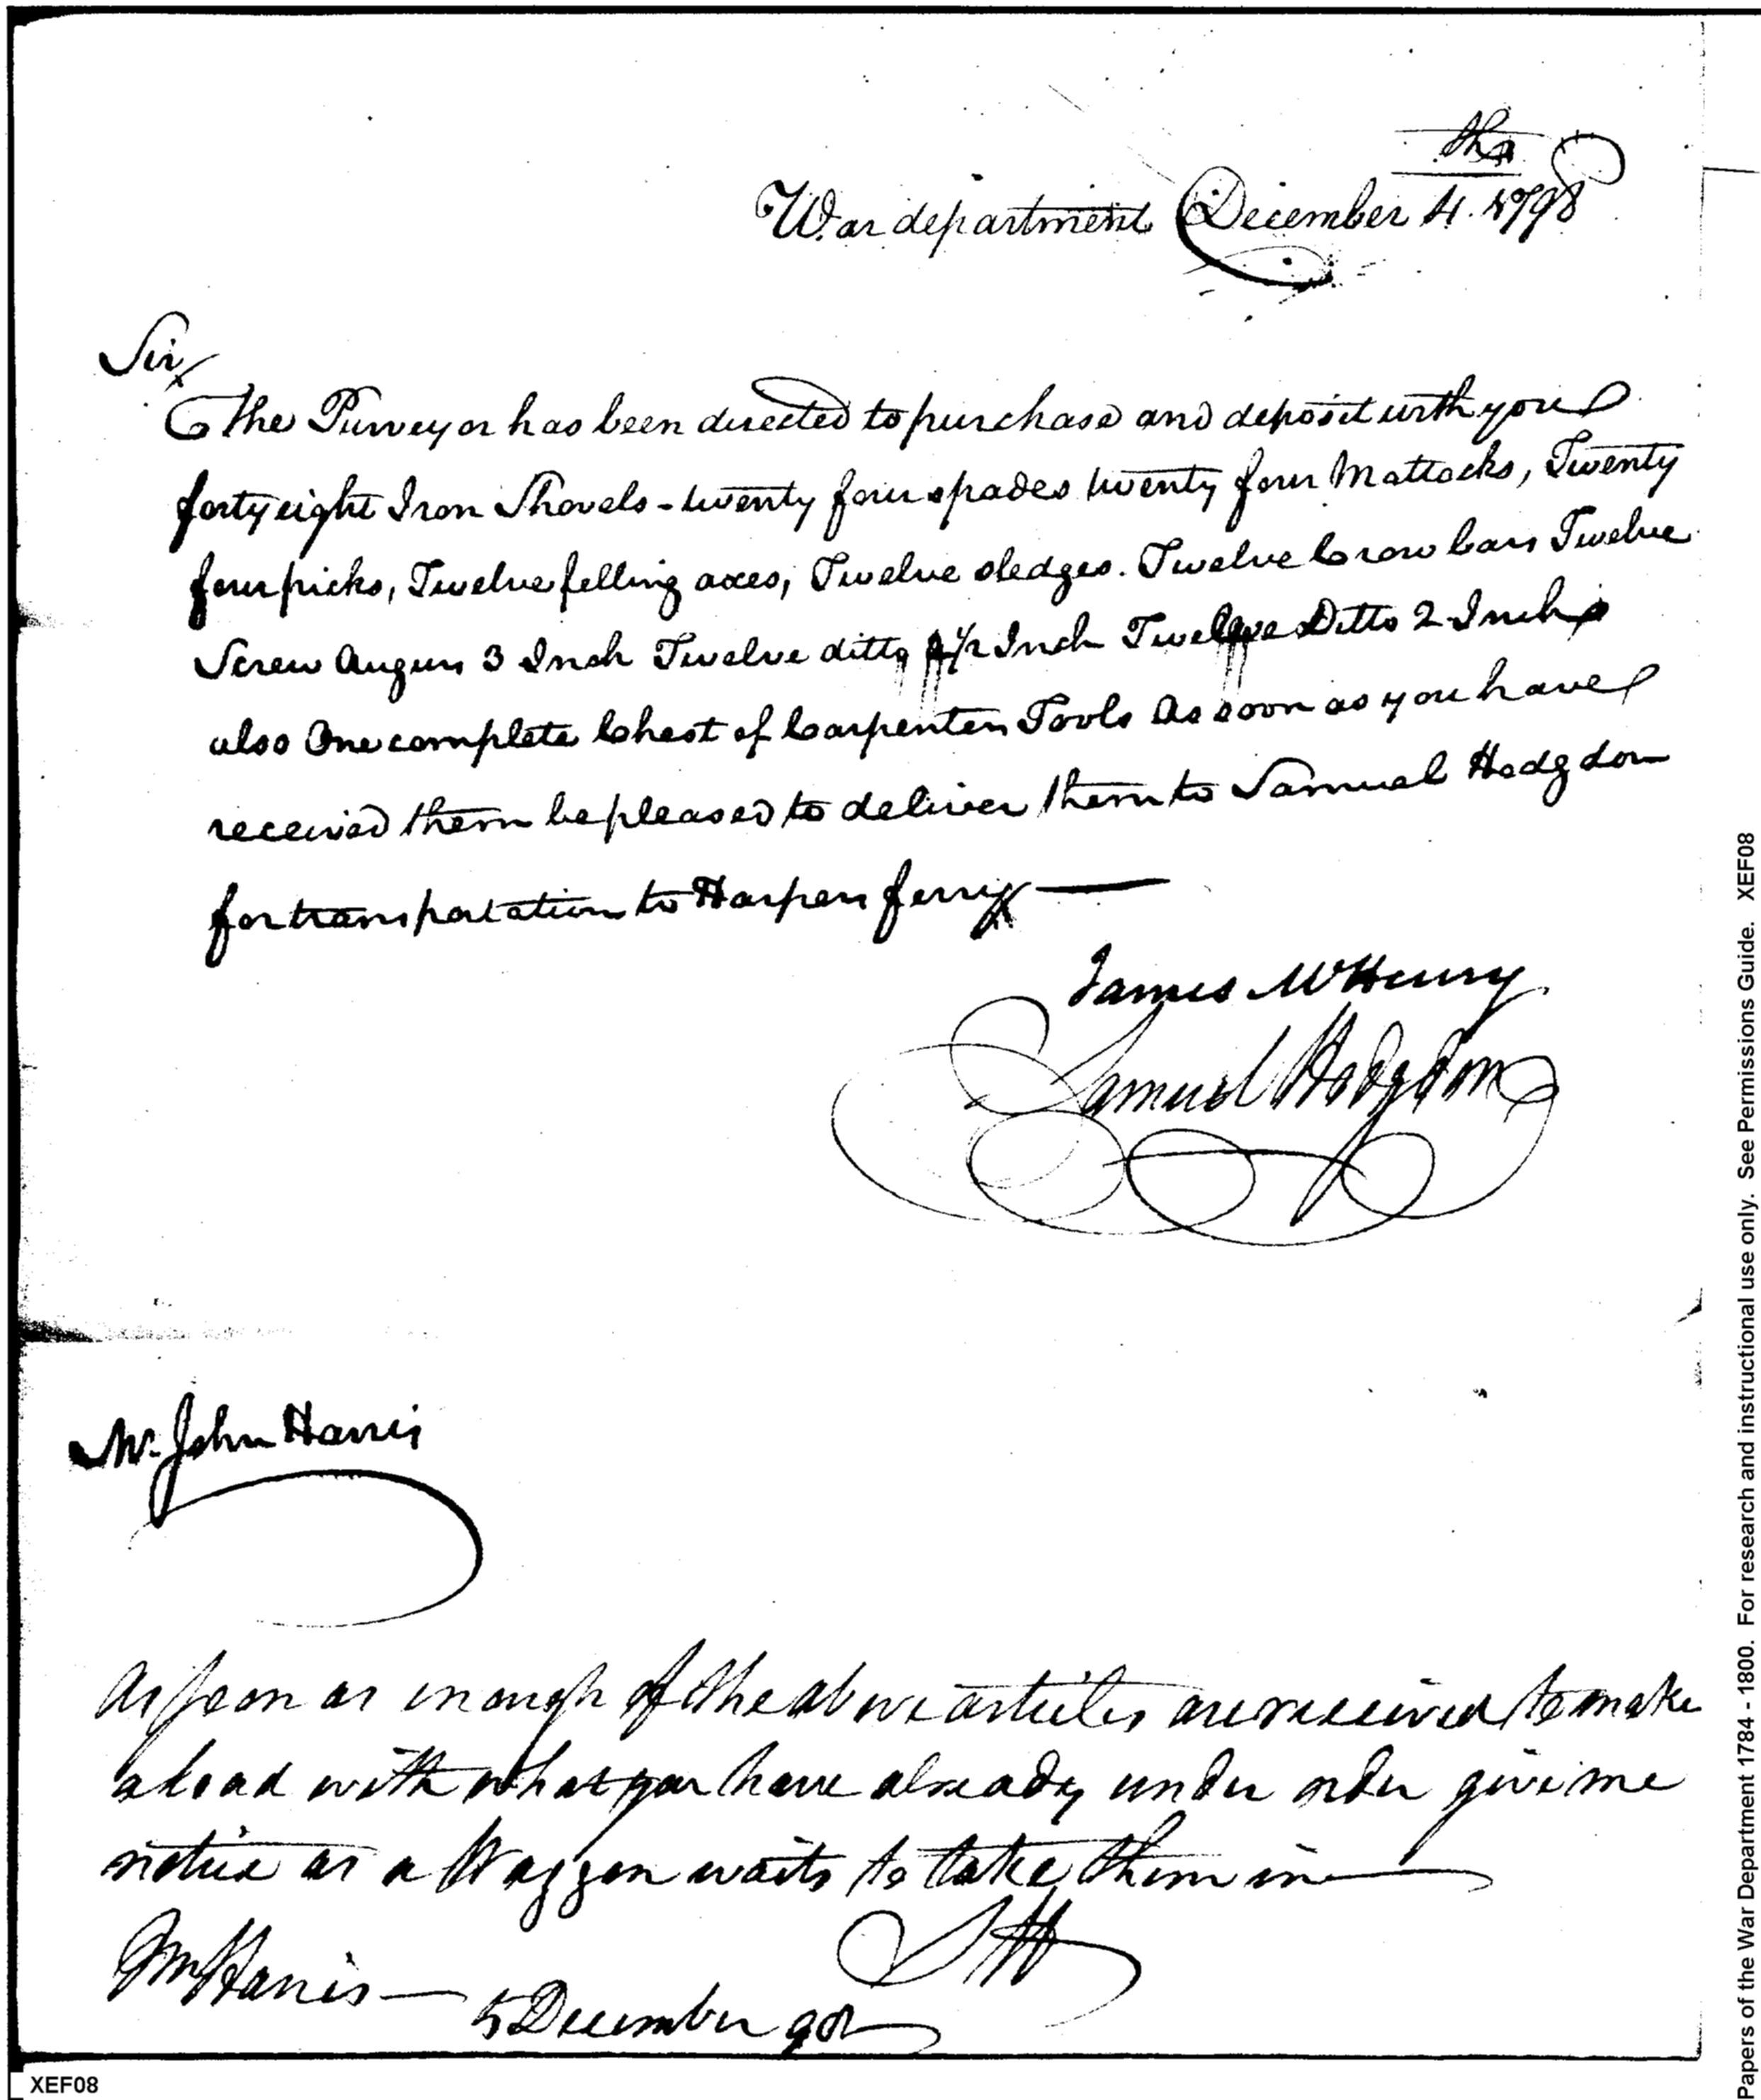 th
War department December 4. 1798
Sir
The Purveyor has been directed to purchase and deposit with you
forty eight Iron Shovels - twenty four spades twenty four Mattocks, Twenty
four picks, Twelve felling axes, Twelve sledges. Twelve Crow bars Twelve
Screw Augurs 3 Inch Twelve ditto 1/2 Inch Twelve Ditto 2 Inch
also One complete Chest of Carpenters Tools As soon as you have
received them be pleased to deliver them to Samuel Hodgdon
for transportation to Harpers ferry —
James McHenry
Samuel Hodgdon
Mr. John Harris
As soon as enough of the above articles are received to make
a load with what you have already under order give me
notice as a Waggon waits to take them in —
SH
Mr Harris —
5 December 98
Papers of the War Department 1784 - 1800. For research and instructional use only. See Permissions Guide. XEF08
XEF08